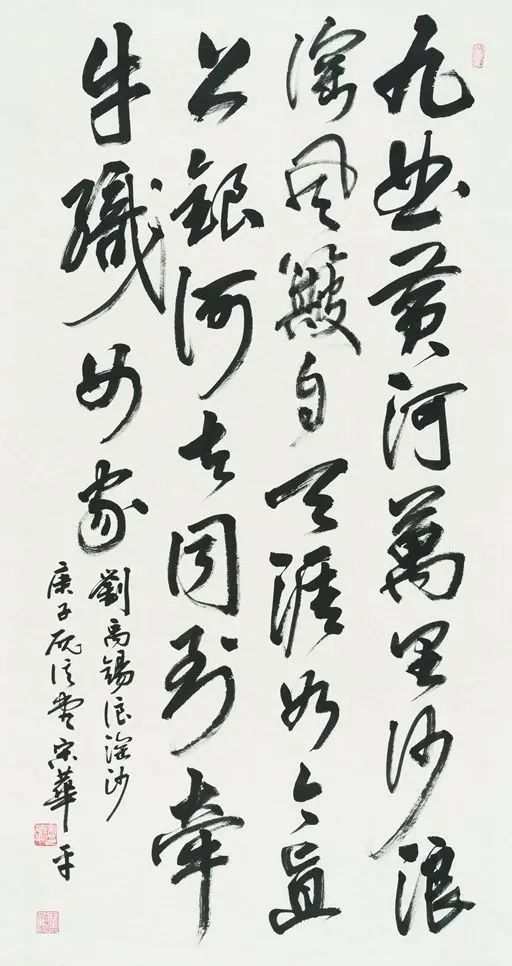 九曲黄河萬里沙浪
淘風簸自天涯如今直
上銀河去同到牽
牛織女家
劉禹錫浪淘沙
庚子宋華平